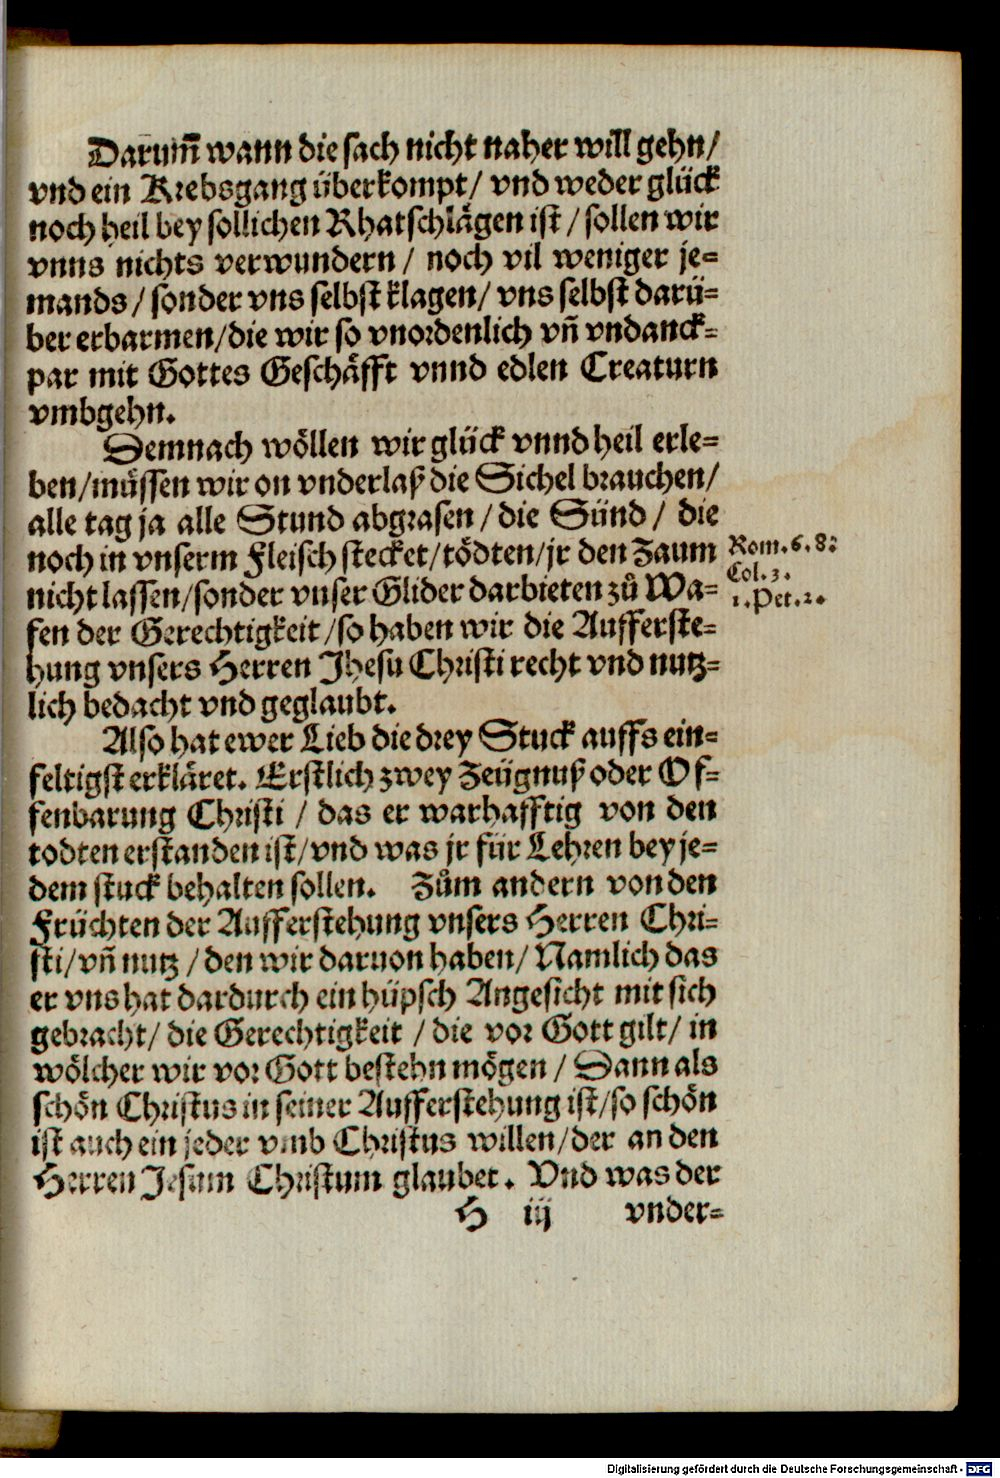 Darum̄ wann die sach nicht naher will gehn/
vnd ein Krebsgang überkompt/ vnd weder glück
noch heil bey sollichen Rhatschlägen ist / sollen wir
vnns nichts verwundern / noch vil weniger je=
mands / sonder vns selbst klagen/ vns selbst darü=
ber erbarmen/die wir so vnordenlich vn̄ vndanck=
par mit Gottes Geschäfft vnnd edlen Creaturn
vmbgehn.
Demnach wöllen wir glück vnnd heil erle=
ben/müssen wir on vnderlaß die Sichel brauchen/
alle tag ja alle Stund abgrasen / die Sünd / die
noch in vnserm Fleisch stecket/tödten/jr den Zaum
nicht lassen/sonder vnser Glider darbieten zů Wa=
fen der Gerechtigkeit /so haben wir die Aufferste=
hung vnsers Herren Jhesu Christi recht vnd nutz=
lich bedacht vnd geglaubt.
Rom.6.8:
Col.3.
1.Pet.2.
Also hat ewer Lieb die drey Stuck auffs ein=
feltigst erkläret. Erstlich zwey Zeügnuß oder Of=
fenbarung Christi / das er warhafftig von den
todten erstanden ist/vnd was jr für Lehren bey je=
dem stuck behalten sollen. Zům andern von den
Früchten der Aufferstehung vnsers Herren Chri=
sti/vn̄ nutz / den wir daruon haben/ Namlich das
er vns hat dardurch ein hüpsch Angesicht mit sich
gebracht/ die Gerechtigkeit / die vor Gott gilt/ in
wölcher wir vor Gott bestehn mögen / Dann als
schön Christus in seiner Aufferstehung ist/so schön
ist auch ein jeder vmb Christus willen/der an den
Herren Jesum Christum glaubet. Vnd was der
H iij vnder=
Digitalisierung gefördert durch die Deutsche Forschungsgemeinschaft - DFG